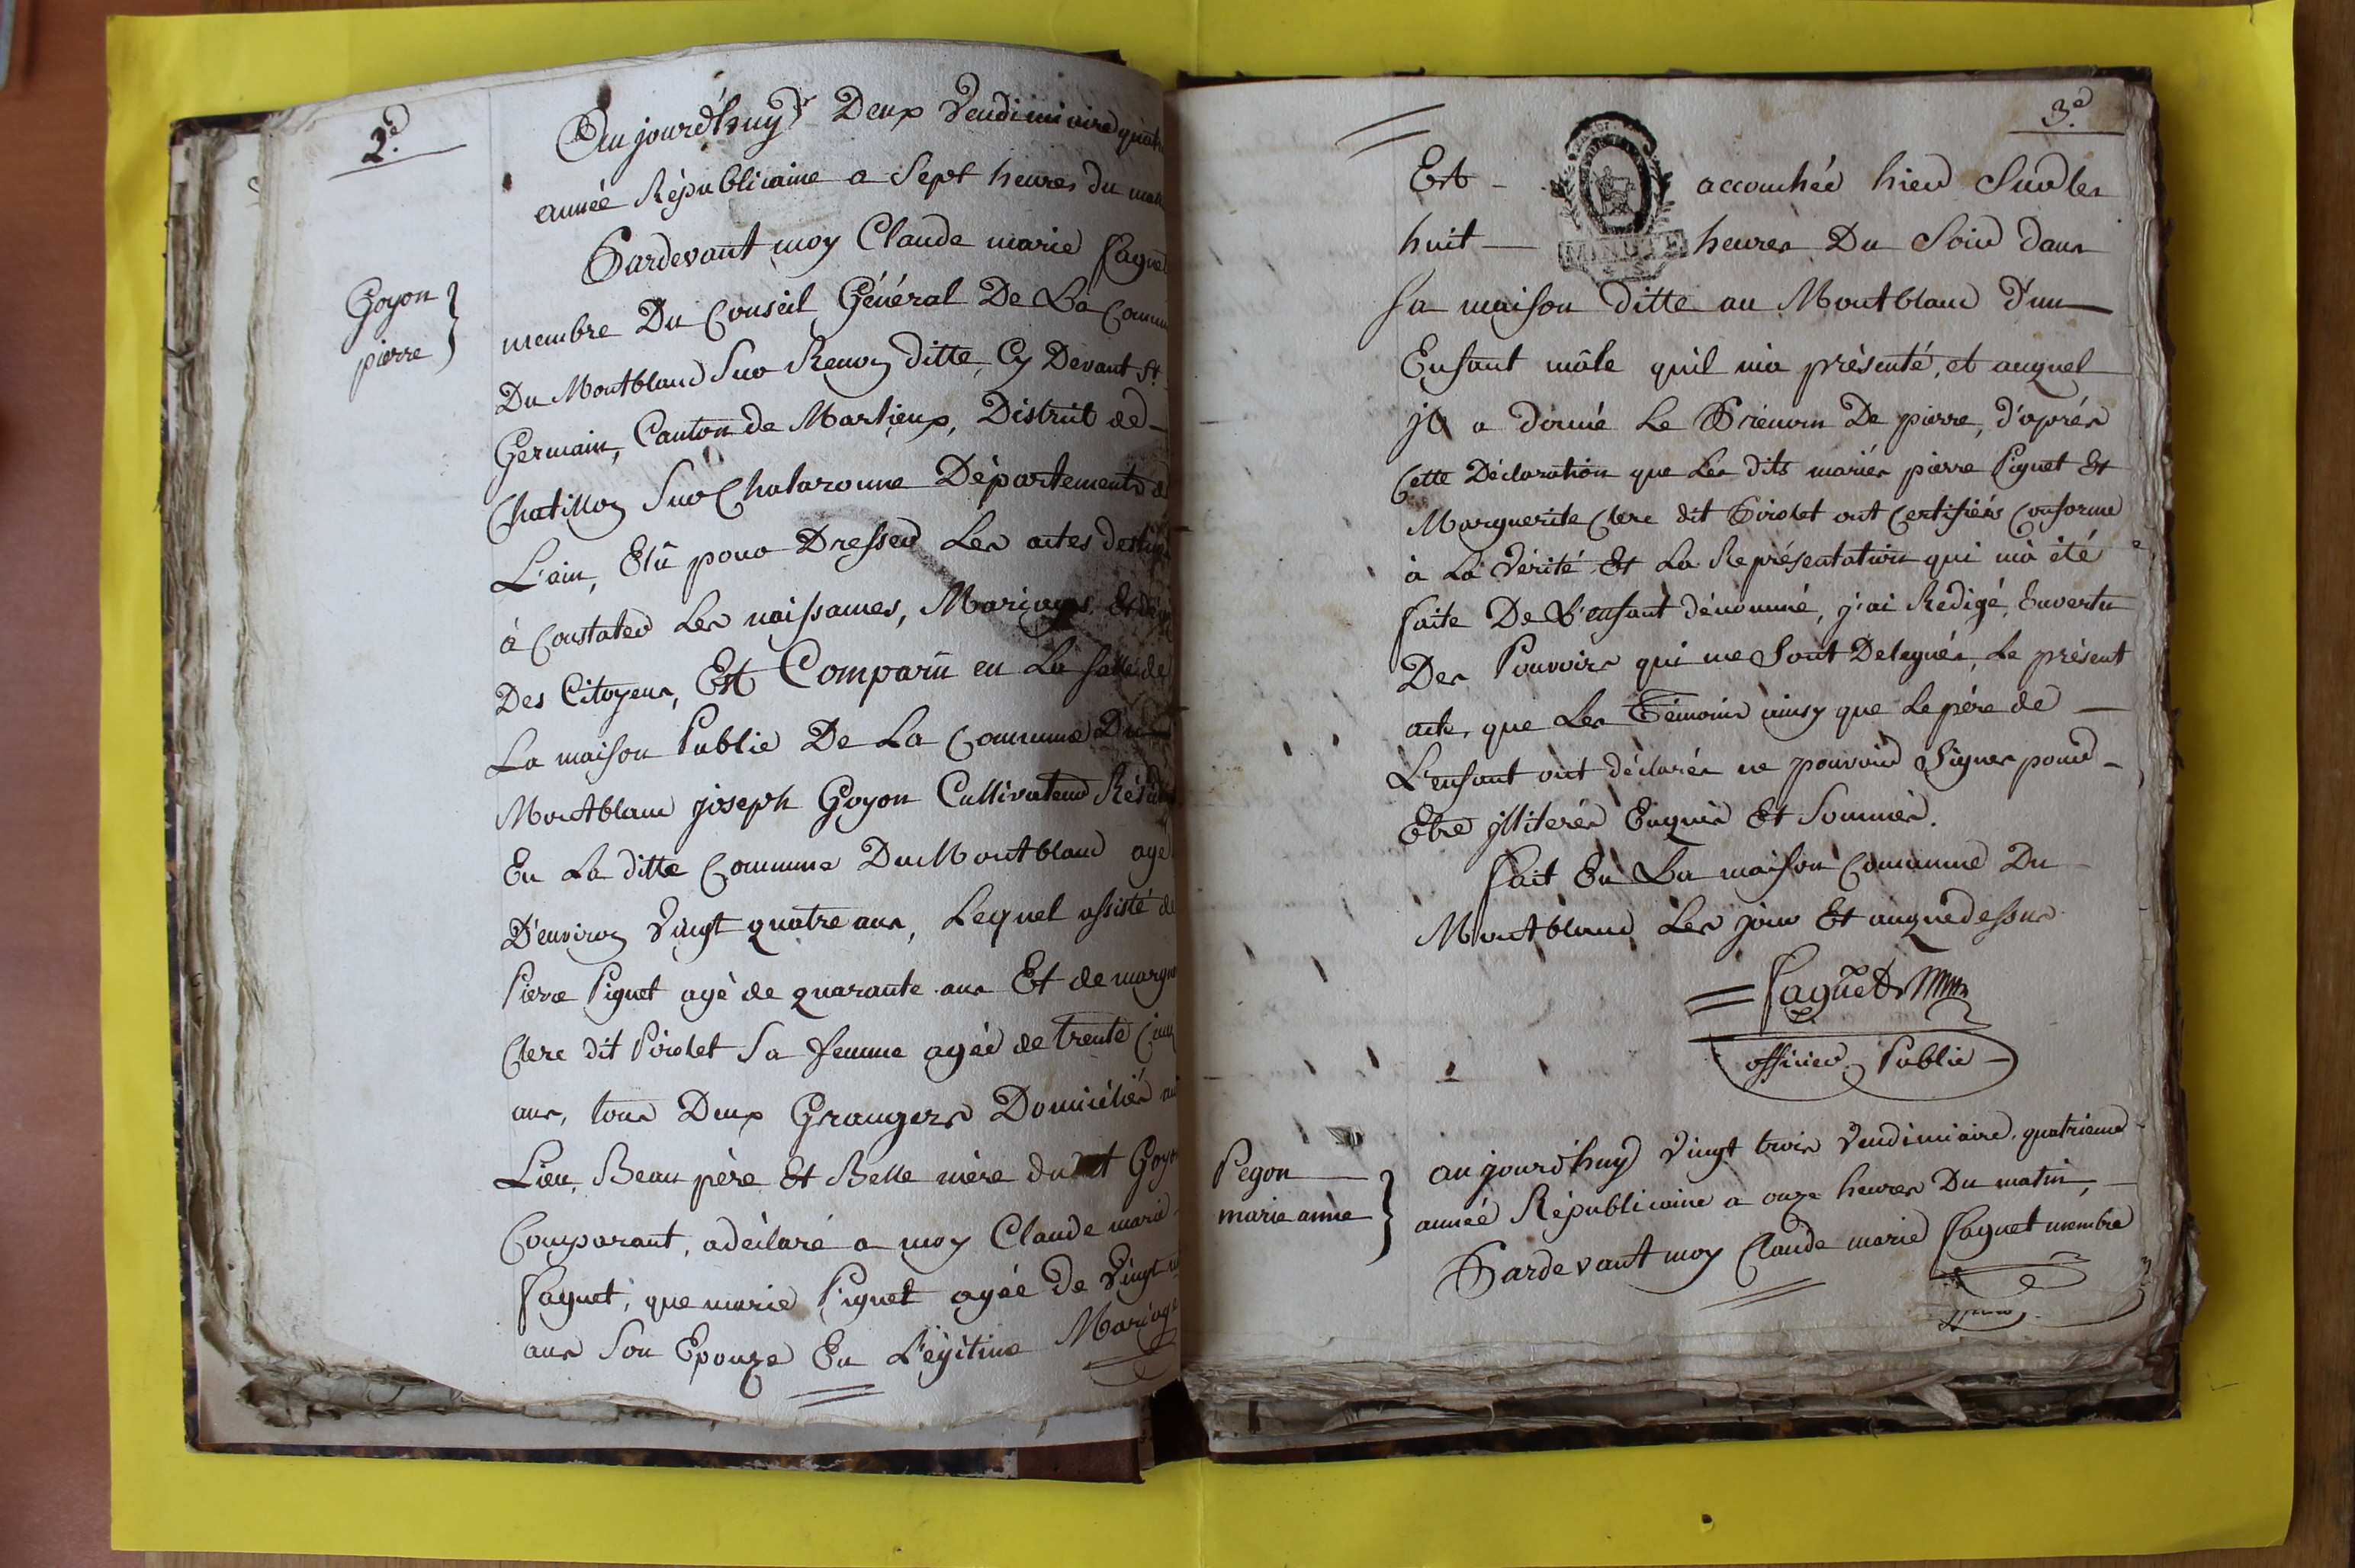 2.e
Aujourd'huy Deux Vendimiaire
année Républicaine a Sept heures du
Pardevant moy Claude marie
membre Du Conseil Général De La
Du Montblanc Sur Renon ditte, Cy Devant St
Germain, Canton de Marlieux, District de
Goyon
pierre
Chatillon Sur Chalaronne Départements
L'ain, Elû pour Dresser Les actes
à Constater Les naissances, Mariages Et
Des Citoyens, Est Comparû en La Salle de
La maison Public De La Commune
Montblanc joseph Goyon Cultivateur
En La ditte Commune Du Montblanc agé
D'environ Vingt quatre ans, Lequel assisté de
Pierre Piguet agé de quarante ans Et de
Clerc dit Pirolet Sa femme agée de trente
ans, tous Deux Grangers Domiciliés
Lieu, Beau père Et Belle mère du
Comparant, a déclaré a moy Claude marie
Faguet, que marie Piguet agée De Vingt
ans Son Epouze En Légitime Mariage
3.e
Est accouchée hier Sur les
huit heures Du Soir dans
MINUTE
Sa maison ditte au Montblanc d'un
Enfant mâle quil m'a présenté, et auquel
jl a donné Le Prénom De pierre, d'après
Cette Déclaration que Les dits mariés pierre Piguet Et
Marguerite Clerc dit Pirolet ont Certifiés Conforme
à La Vérité Et La Représentation qui m'a été
faite De L'enfant dénommé, j'ai Redigé, Envertu
Des Pouvoirs qui me Sont Delegués, Le présent
acte, que Les Témoins ainsy que Le père de
L'enfant ont déclarés ne pouvoir Signer pour
Etre jlliterés Enquis Et Sommés.
fait En La maison Commune Du
Montblanc Les jour Et anque dessus
Faguet
officier Public
Pegon
marie anne
aujourd'huy Vingt trois Vendimiaire, quatrieme
année Républicaine a onze heures Du matin,
Pardevant moy Claude marie Faguet membre